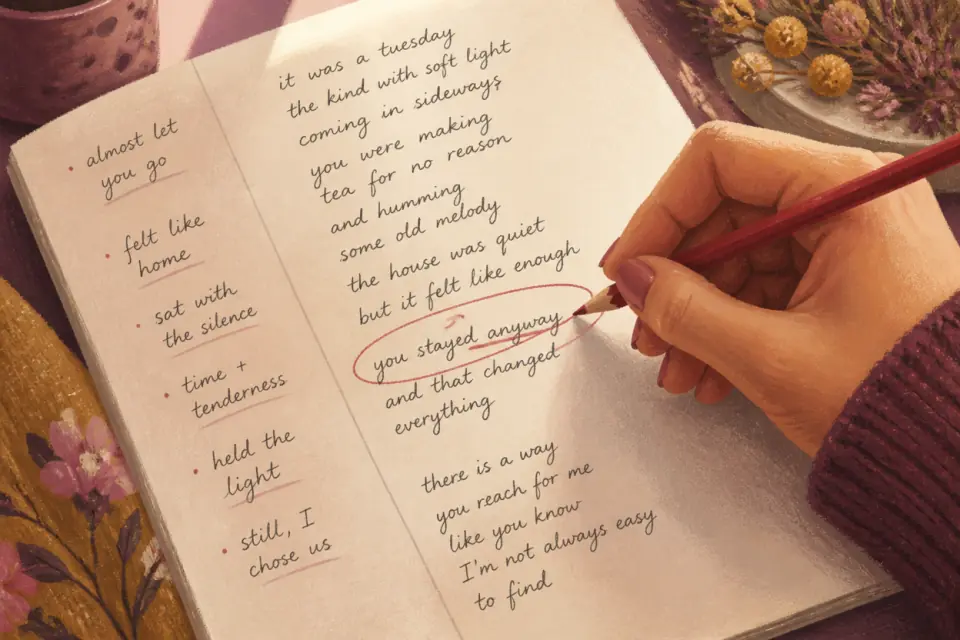 almost let
you go
felt like
home
sat with
the silence
time +
tenderness
held the
light
still, I
chose us
it was a tuesday
the kind with soft light
coming in sideways,
you were making
tea for no reason
and humming
some old melody
the house was quiet
but it felt like enough
you stayed anyway
and that changed
everything
there is a way
you reach for me
like you know
I'm not always easy
to find